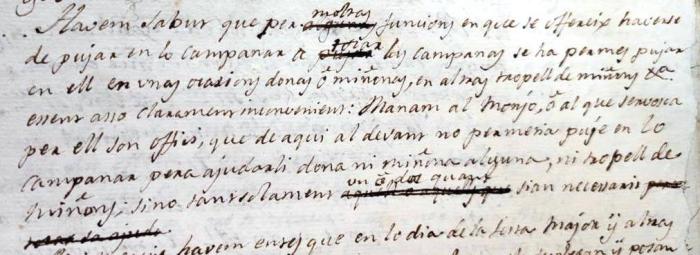 Havem sabut que per moltas funcions en que se offereix haverse
de pujar en lo campanar a tocar las campanas se ha permes pujar
en ell en unas ocasions donas ò miñonas, en altras tropell de miñons
essent asso clarament inconvenient: Manam al Monjo, ò al que servesca
per ell son offici, que de aqui al devant no permetia puje en lo
campanar pera ajudarli dona ni miñona alguna, ni tropell de
miñons; sino tant solament un ò dos quant sian necessaris
havem entes que en lo dia de la festa major y altras